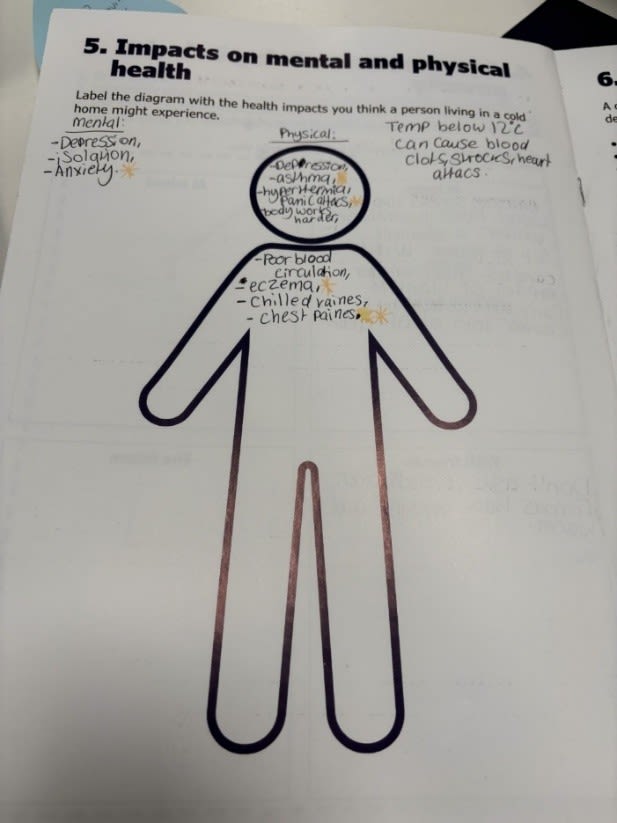 5. Impacts on mental and physical
health
Label the diagram with the health impacts you think a person living in a cold
home might experience.
Mental:
-Depression,
-isolation,
-Anxiety.
Physical:
-Depression,
-asthma,
-hyperthermia,
Panic attacs,
body works
harder,
-Poor blood
circulation,
-eczema,
-Chilled vaines,
-Chest paines.
Temp below 12°c
can cause blood
clots, strocks, heart
attacs.
6.
A c
de